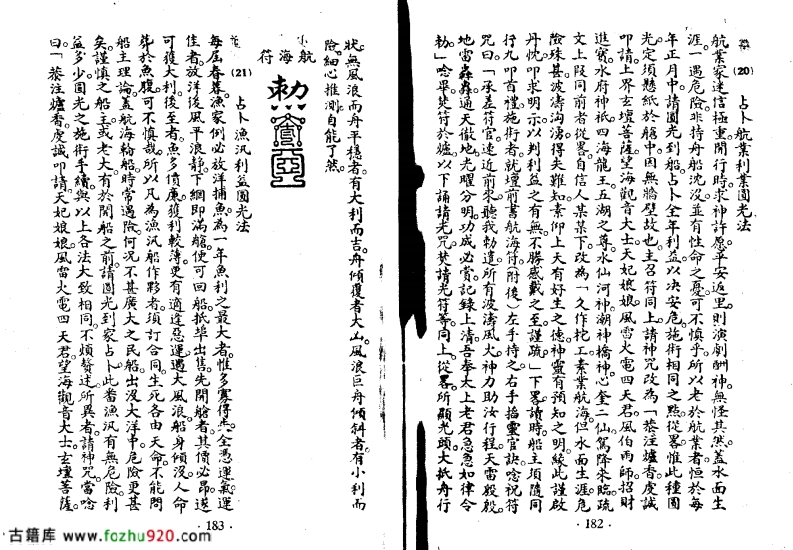 (20) 占卜航業利業圓光法
航業家迷信極重開行時求神許愿平安返里則演劇酬神無怪其然蓋水面生
涯一遇危險非特舟船沈沒並有性命之憂可不慎乎所以老於航業者恒於每
年正月中請圓光到船占卜全年利益以决安危施術相同之點從畧惟此種圓
光定須懸紙於艙中因無牆壁故也主召符同上請神咒改為「爇注爐香虔誠
叩請上界玄壇菩薩望海觀音大士天妃娘娘風雷火電四天君風伯雨師招財
進寳水府神祇四海龍王五湖之尊水仙河神潮神橋神心奎二仙駕降來臨疏
文上段同前者從畧自信人某某下改為「久作挖工素業航海但水面生涯危
險殊甚波濤洶湧得失難知素仰上天有好生之德神靈有預知之明綫此謹啟
丹忱叩求明示以判利益之有無不勝感戴之至謹疏」下畧讀時船主須隨同
行九叩首禮施術者就壇前書航海符(附後)左手持之右手掐靈官訣唸祝符
咒曰「承差符官速近前來聽我勅遣所有波濤風火神力助汝行程天雷殷殷
地雷轟轟通天徹地光曜分明功成必賞記錄上清吾奉太上老君急急如律令
勅」唸畢焚符於爐以下誦請光咒焚請光符等同上從畧所顯光頭大抵舟行
· 182 ·
狀無風浪而舟平穩者有大利而吉舟傾覆者大凶風浪巨舟傾斜者有小利而
險細心推測自能了然
航海小符
(21) 占卜漁汛利益圓光法
每屆春暮漁家例必放洋捕魚為一年魚利之最大者惟多寡得失全憑運氣運
佳者放洋後風平浪靜一網即滿艙便可回船抵埠出售先開艙者其價必昂遂
可獲大利後至者魚多價廉獲利較薄更有適逢惡運遭大風浪船身傾沒人命
葬於魚腹可不慎哉所以凡為漁汛船作夥者須訂合同生死各由天命不能問
船主理論蓋航海輪船時常遇險何况不甚廣大之民船出沒大洋中危險更甚
矣謹慎之船主或老大有於開船之前請圓光到家占卜此番漁汛有無危險利
益多少圓光之施術手續與以上各法大致相同不煩贅述所異者請神咒當唸
曰「爇注爐香虔誠叩請天妃娘娘風雷火電四天君望海觀音大士玄壇菩薩
· 183 ·
古籍库 www.fozhu920.com